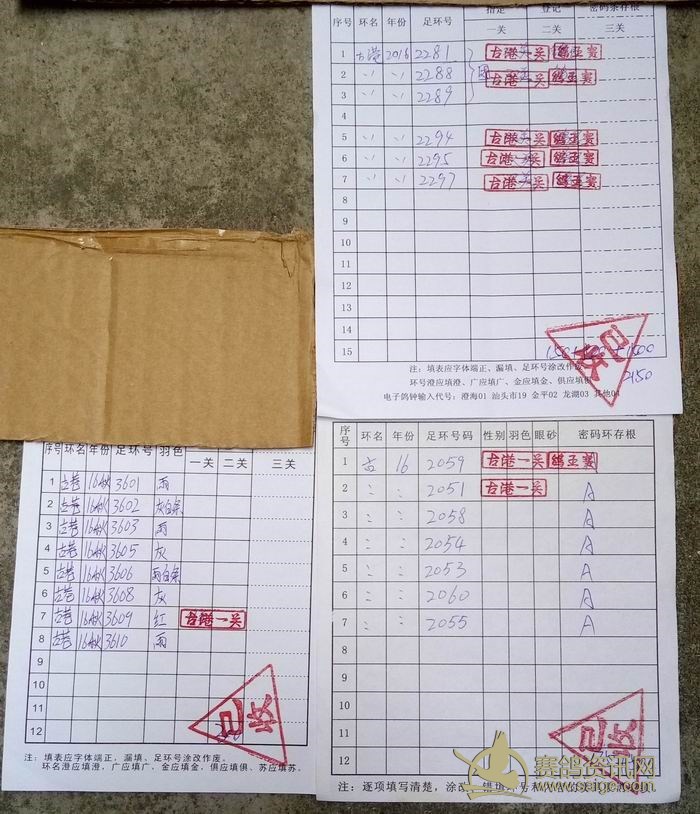 序号 环名 年份 足环号 指定 登记 密码条存根
一关 二关 三关
1 古港 2016 2281 古港一关
2 〃 〃 2288 古港一关
3 〃 〃 2289
4
5 〃 〃 2294 古港一关
6 〃 〃 2295 古港一关
7 〃 〃 2297 古港一关
8
9
10
11
12
13
14
15
2150
注：填表应字体端正、漏填、足环号涂改作废。
环号澄应填澄、广应填广、金应填金、俱应填俱
电子鸽钟输入代号：澄海01 汕头市19 金平02 龙湖03 其他04
序号 环名 年份 足环号 羽色
一关 二关 三关
1 16秋 3601 雨
2 16秋 3602 灰白条
3 16秋 3603 雨
4 16秋 3605 灰
5 16秋 3606 雨白条
6 16秋 3608 灰
7 16秋 3609 红 古港一关
8 16秋 3610 雨
9
10
11
12
已收
注：填表应字体端正，漏填、足环号涂改作废。
环名澄应填澄，广应填广，金应填金，俱应填俱、苏应填苏。
序号 环名 年份 足环号码 性别 羽色 眼砂 密码环存根
1 16 2059 古港一关
2 〃 〃 2051 古港一关 A
3 〃 〃 2058 A
4 〃 〃 2054 A
5 〃 〃 2053 A
6 〃 〃 2060 A
7 〃 〃 2055 A
8
9
10
11
12
已收
注：逐项填写清楚，涂改
赛鸽资讯网
www.saige.com